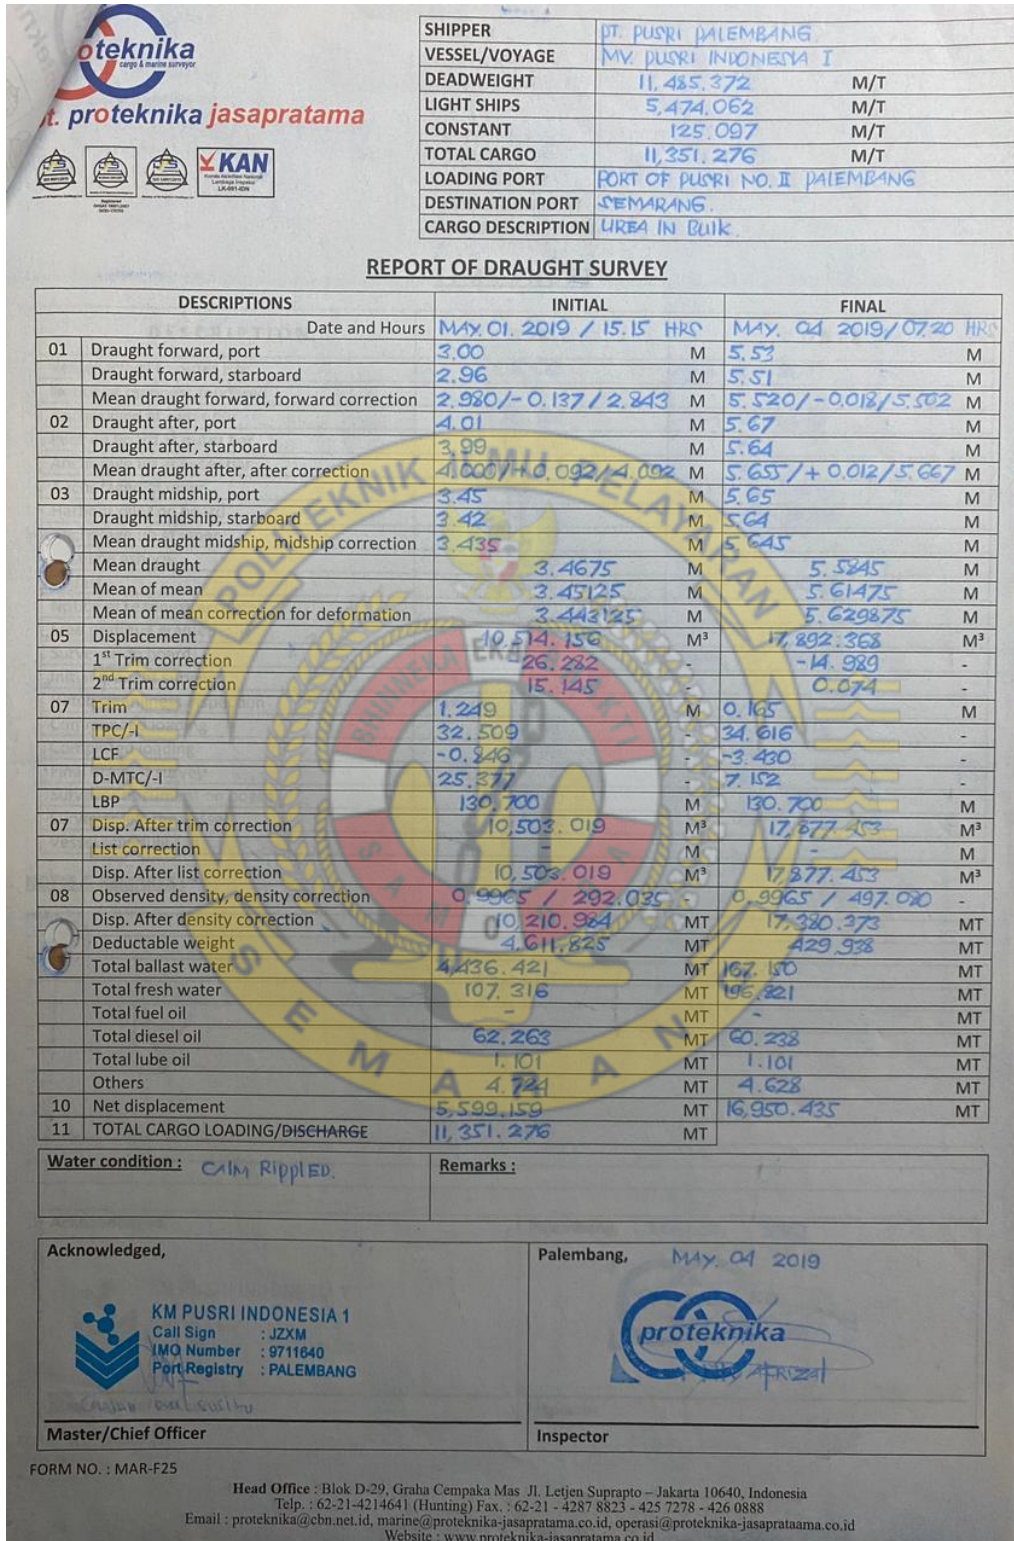 oteknika
cargo & marine surveyor
t. proteknika jasapratama
KAN
Komite Akreditasi Nasional
Lembaga Inspeksi
LK-091-IDN
SHIPPER PT. PUSRI PALEMBANG
VESSEL/VOYAGE MV. PUSRI INDONESIA I
DEADWEIGHT 11,485.372 M/T
LIGHT SHIPS 5,474.062 M/T
CONSTANT 125.097 M/T
TOTAL CARGO 11,351.276 M/T
LOADING PORT PORT OF PUSRI NO. II PALEMBANG
DESTINATION PORT SEMARANG.
CARGO DESCRIPTION UREA IN BULK.
REPORT OF DRAUGHT SURVEY
DESCRIPTIONS INITIAL FINAL
Date and Hours MAY. 01. 2019 / 15.15 HRS MAY. 04 2019/07.20 HRS
01 Draught forward, port 3.00 M 5.53 M
Draught forward, starboard 2.96 M 5.51 M
Mean draught forward, forward correction 2.980/-0.137/2.843 M 5.520/-0.018/5.502 M
02 Draught after, port 4.01 M 5.67 M
Draught after, starboard 3.99 M 5.64 M
Mean draught after, after correction 4.000/+0.092/4.092 M 5.655/+0.012/5.667 M
03 Draught midship, port 3.45 M 5.65 M
Draught midship, starboard 3.42 M 5.64 M
Mean draught midship, midship correction 3.435 M 5.645 M
Mean draught 3.4675 M 5.5845 M
Mean of mean 3.45125 M 5.61475 M
Mean of mean correction for deformation 3.443125 M 5.629875 M
05 Displacement 10,514.156 M³ 17,892.368 M³
1st Trim correction 26.282 - -14.989 -
2nd Trim correction 15.145 - 0.074 -
07 Trim 1.249 M 0.165 M
TPC/-I 32.509 - 34.616 -
LCF -0.846 - -3.430 -
D-MTC/-I 25.377 - 7.152 -
LBP 130.700 M 130.700 M
07 Disp. After trim correction 10,503.019 M³ 17,877.453 M³
List correction - M - M
Disp. After list correction 10,503.019 M³ 17,877.453 M³
08 Observed density, density correction 0.9965 / 292.035 - 0.9965 / 497.080 -
Disp. After density correction 10,210.984 MT 17,380.373 MT
Deductable weight 4.611,825 MT 429.938 MT
Total ballast water 4,436.421 MT 167.150 MT
Total fresh water 107.316 MT 196.821 MT
Total fuel oil - MT - MT
Total diesel oil 62.263 MT 60.238 MT
Total lube oil 1.101 MT 1.101 MT
Others 4.724 MT 4.628 MT
10 Net displacement 5,599.159 MT 16,950.435 MT
11 TOTAL CARGO LOADING/DISCHARGE 11,351.276 MT
POLITEKNIK ILMU PELAYARAN
BHINNEKA EKA BHAKTI
SAMO
SEMARANG
Water condition : CALM RIPPLED.
Remarks :
Acknowledged,
KM PUSRI INDONESIA 1
Call Sign : JZXM
IMO Number : 9711640
Port Registry : PALEMBANG
Master/Chief Officer
Palembang, MAY. 04 2019
proteknika
AFRIZAL
Inspector
FORM NO. : MAR-F25
Head Office : Blok D-29, Graha Cempaka Mas Jl. Letjen Suprapto – Jakarta 10640, Indonesia
Telp. : 62-21-4214641 (Hunting) Fax. : 62-21 - 4287 8823 - 425 7278 - 426 0888
Email : proteknika@cbn.net.id, marine@proteknika-jasapratama.co.id, operasi@proteknika-jasaprataama.co.id
Website : www.proteknika-jasapratama.co.id